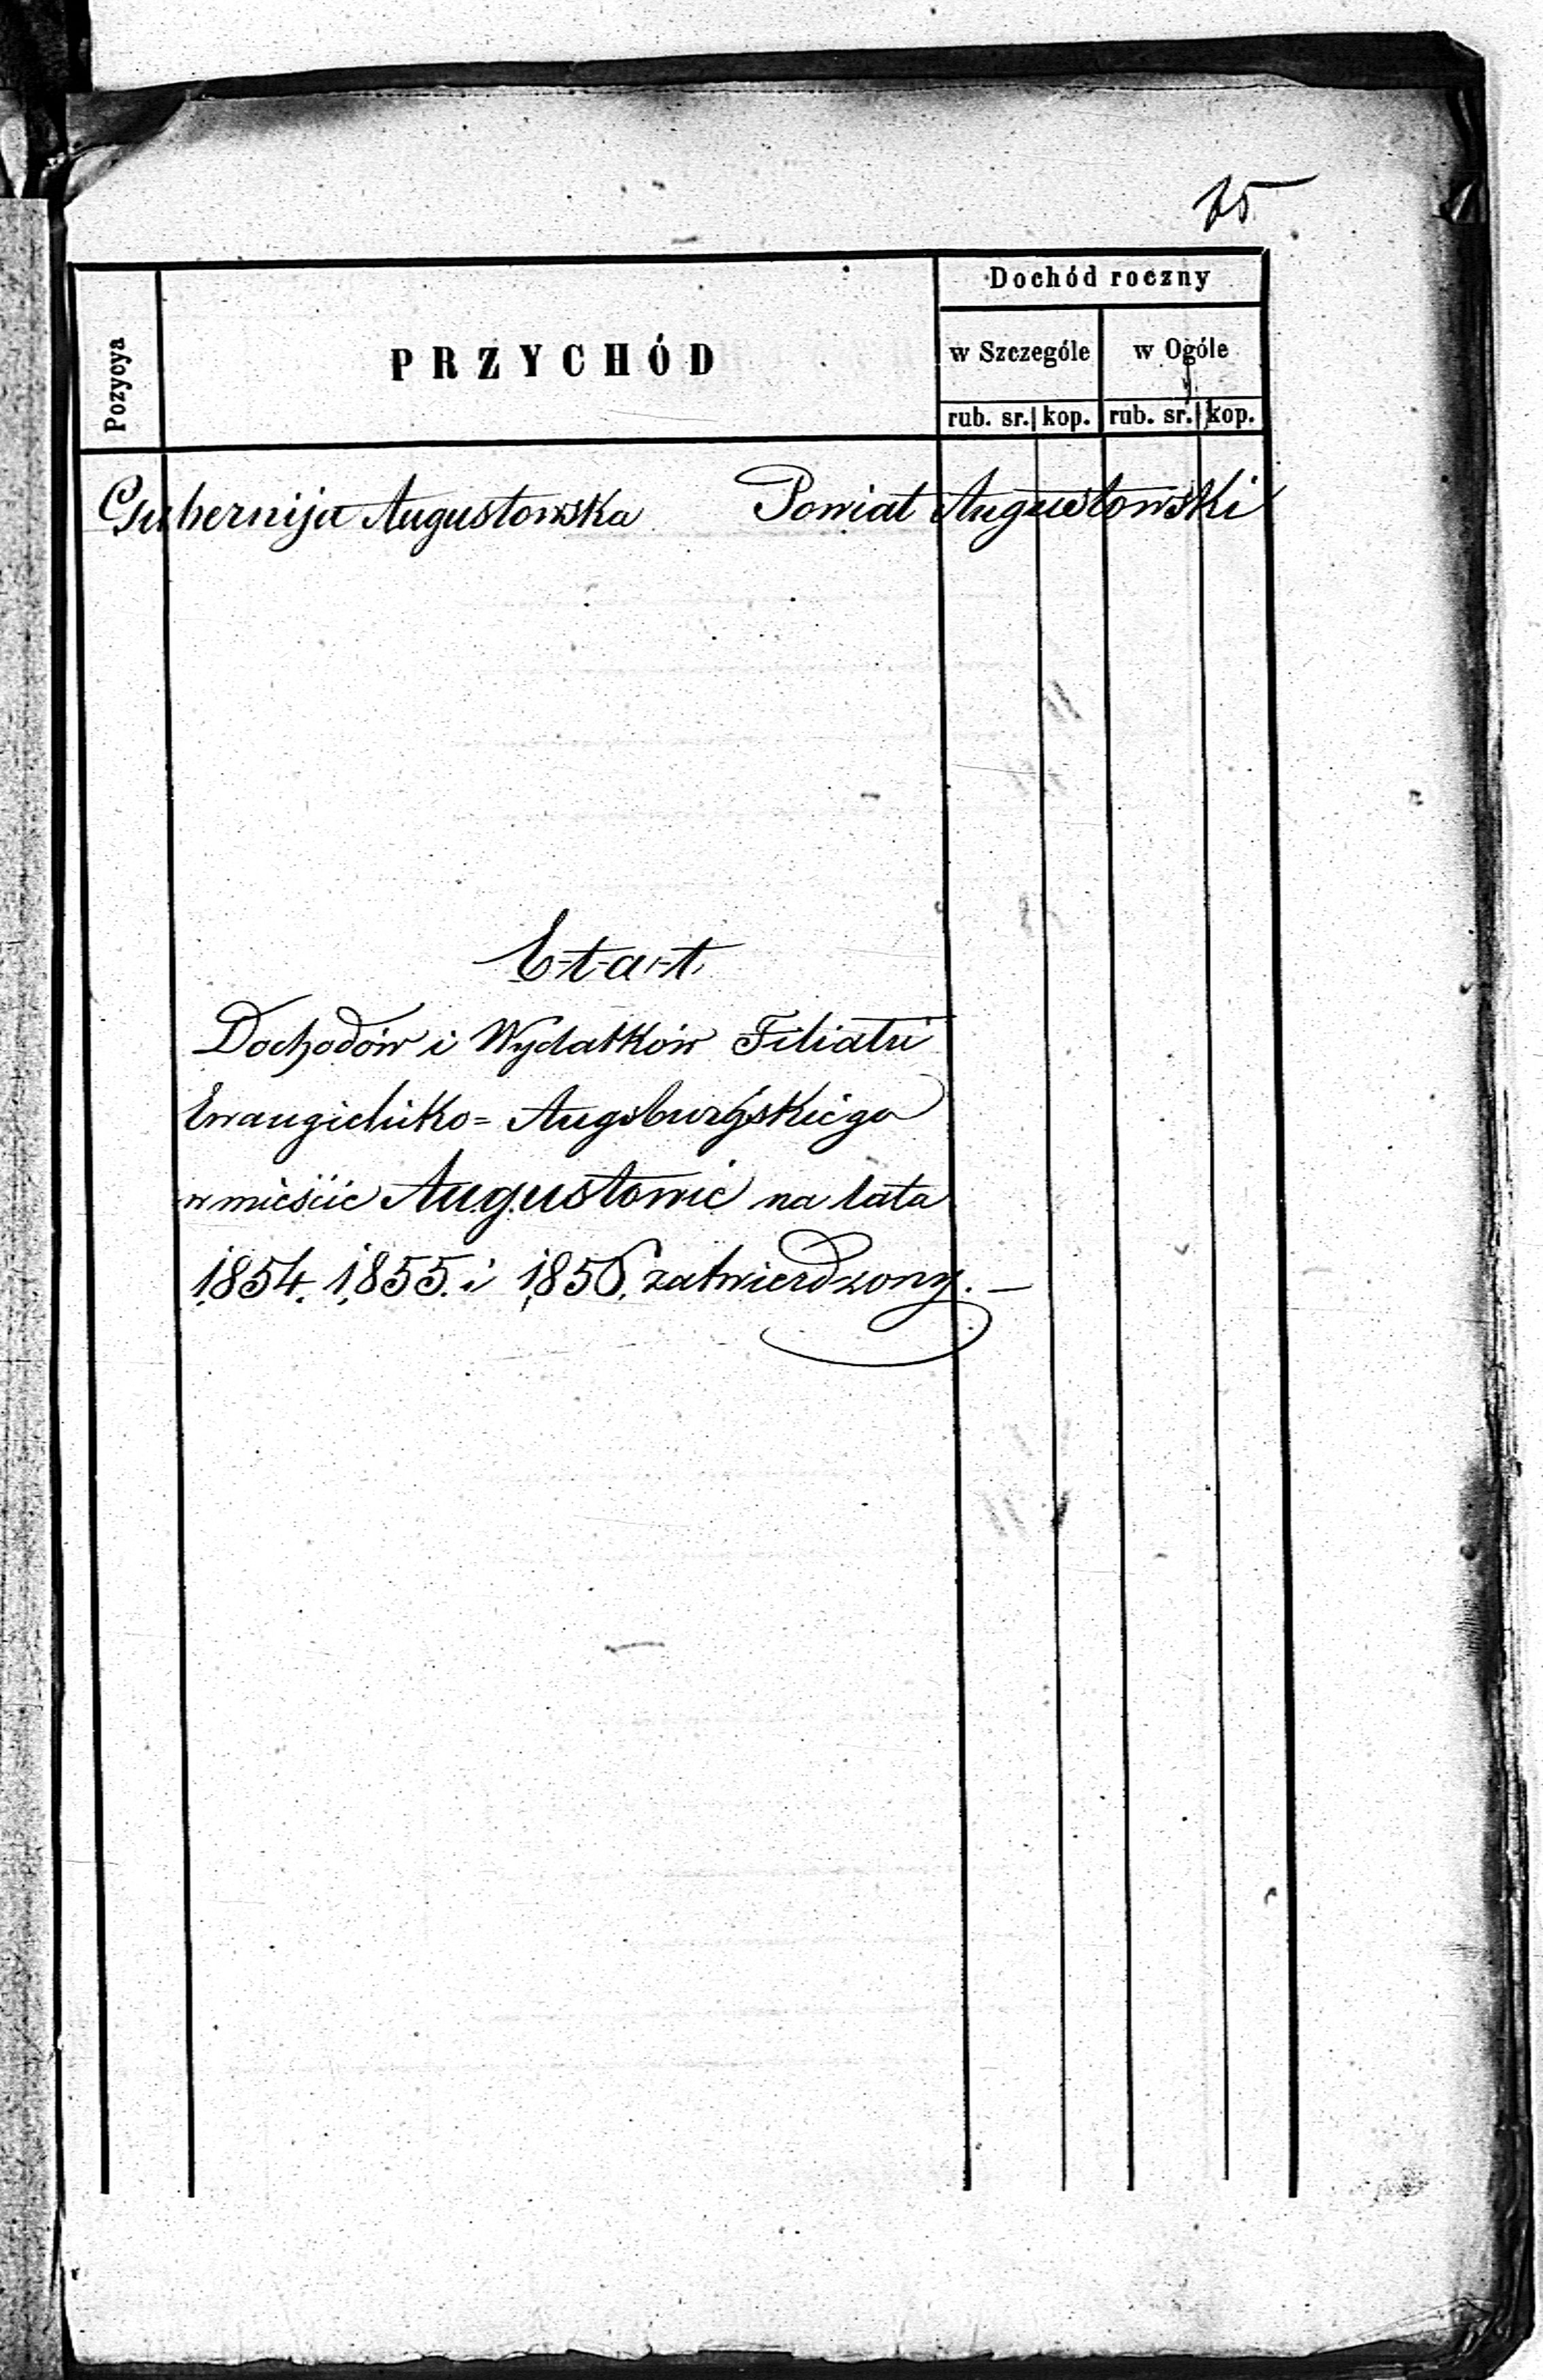 15
Dochód roczny
Pozycya
PRZYCHÓD
w Szczególe
w Ogóle
rub. sr. kop. rub. sr. kop.
Gubernija Augustowska Powiat Augustowski
E-t-a-t
Dochodów i Wydatków Filiału
Ewangielicko= Augsburgskiego
w mieście Augustowie na lata
1854. 1855. i 1856. zatwierdzony. —